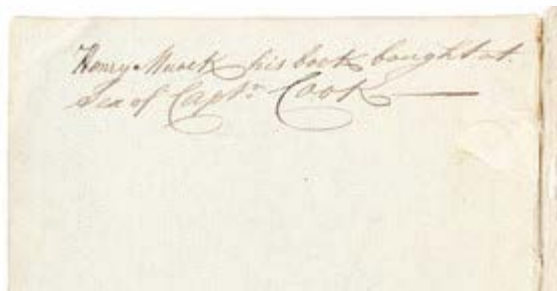 Henry Muock his book bought at
Sea of Capt.n Cook